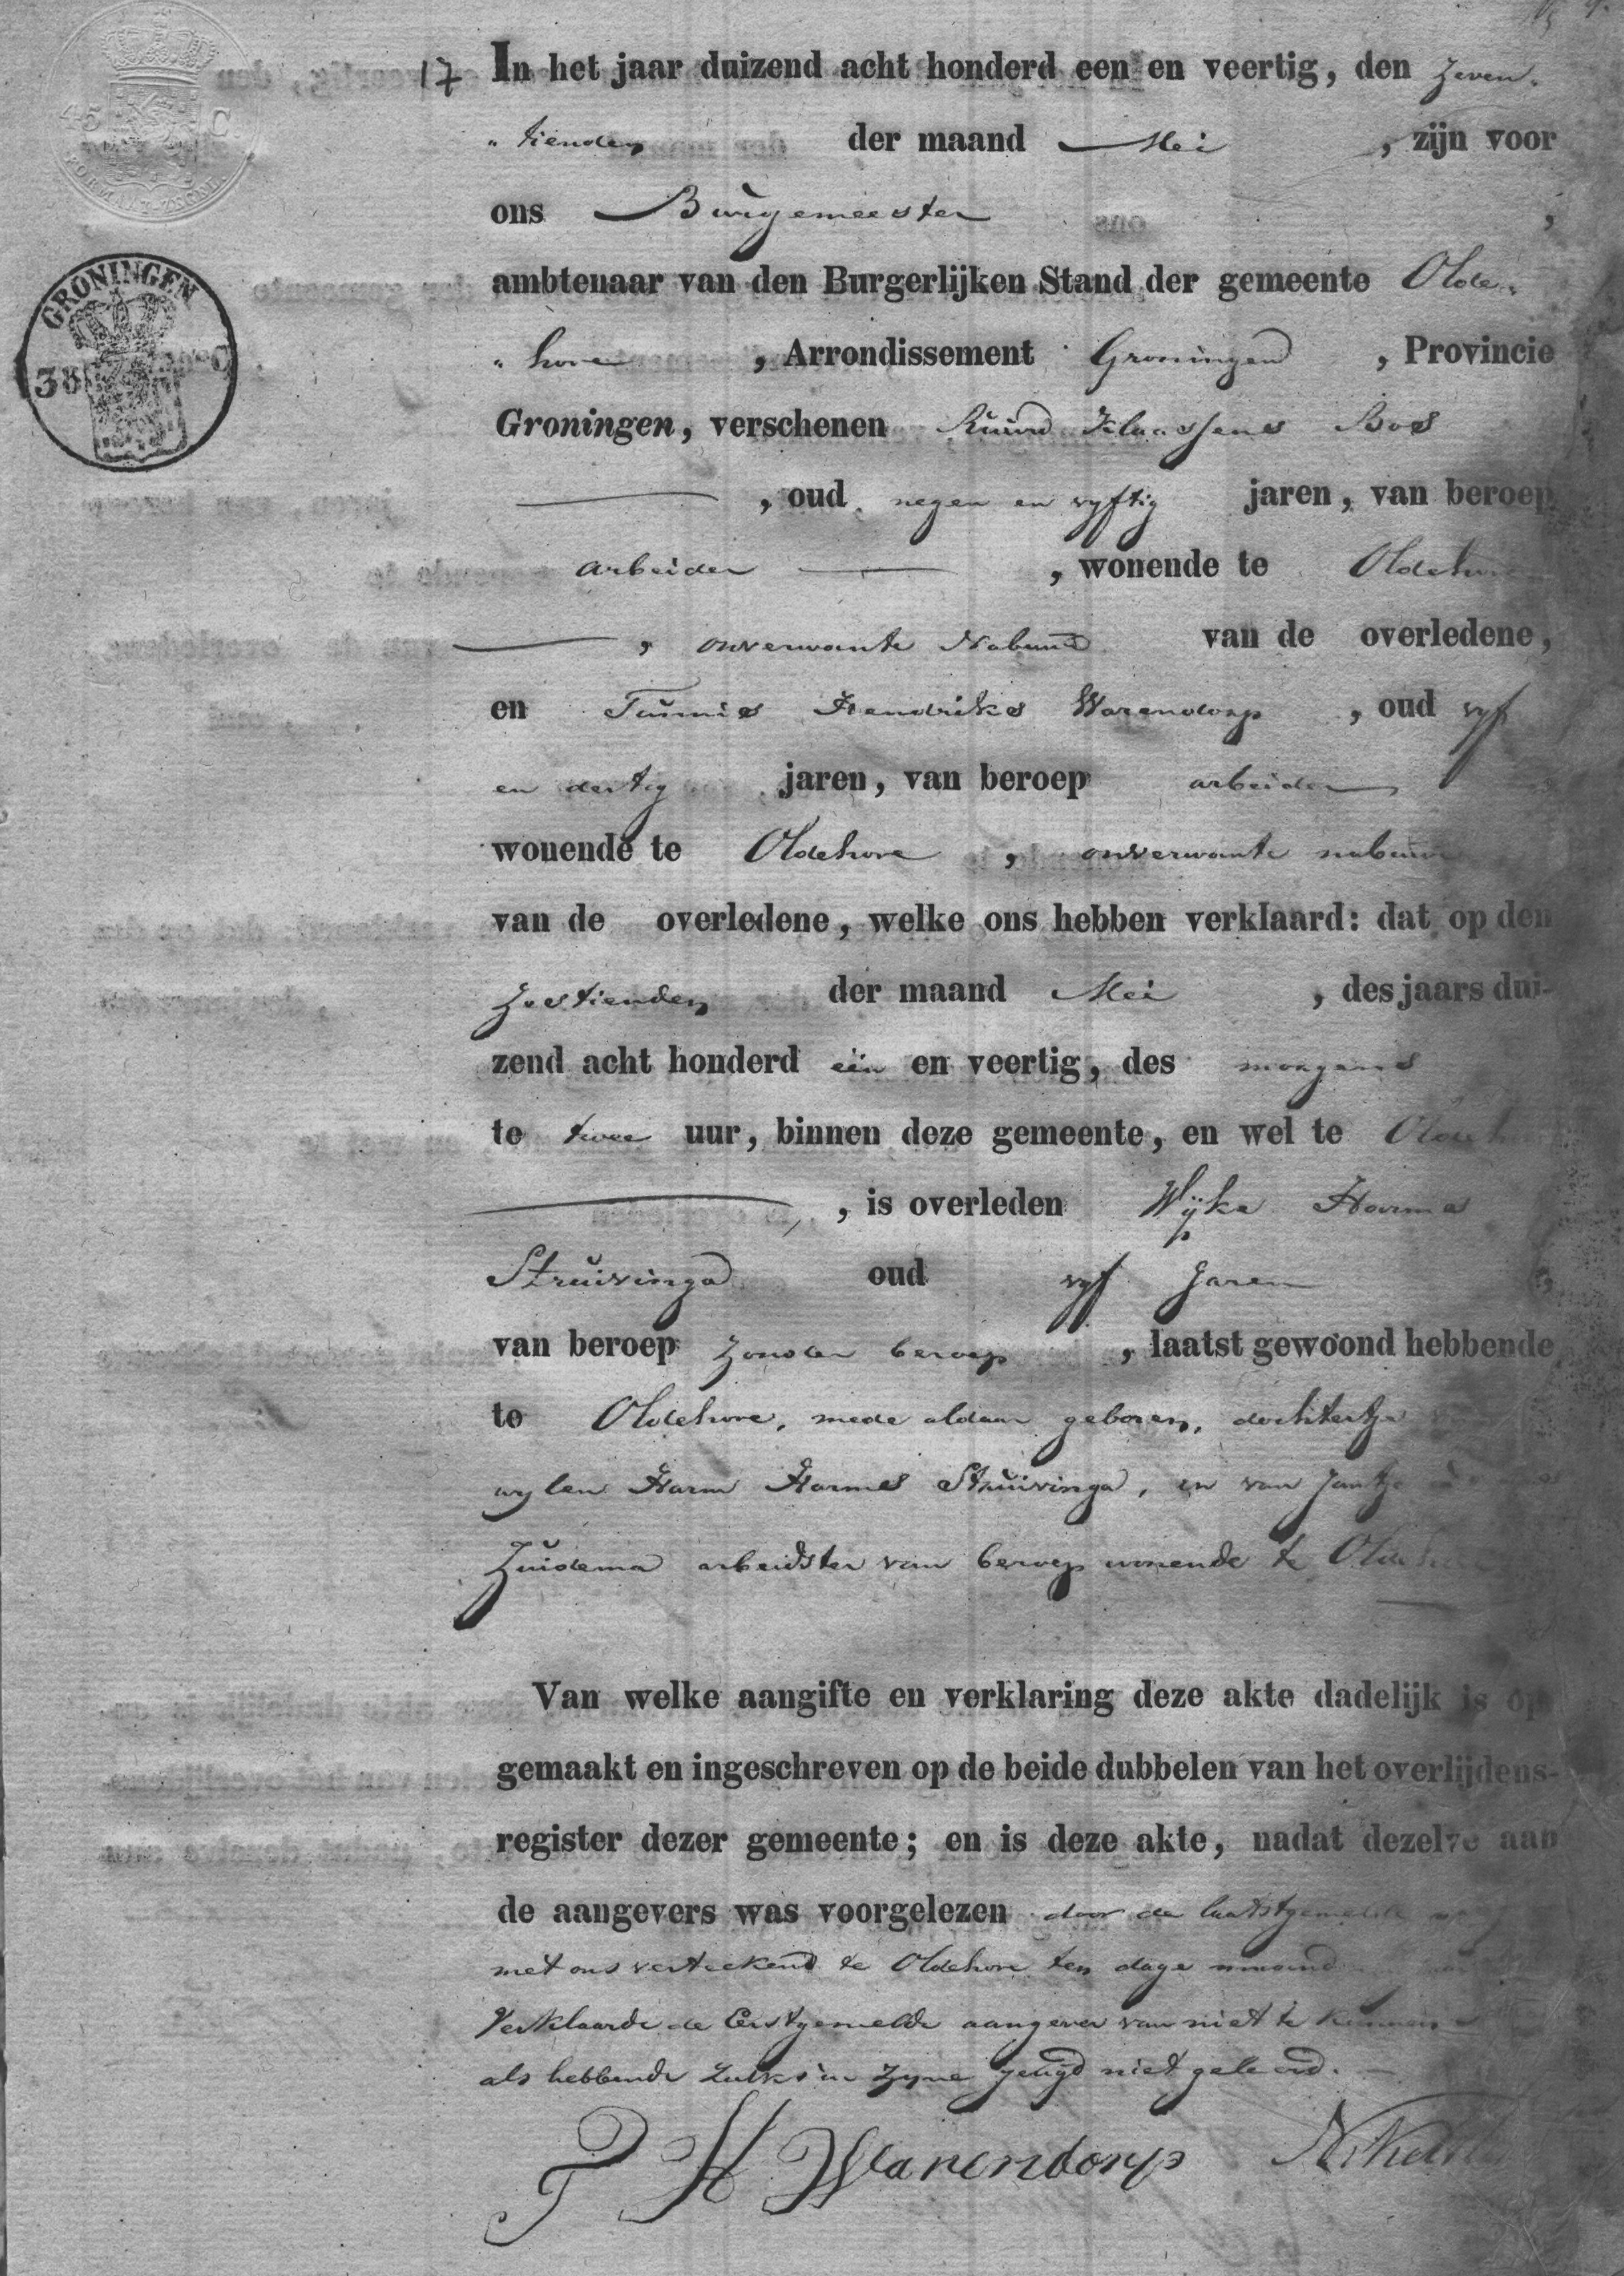 17 In het jaar duizend acht honderd een en veertig, den zeven-
"tienden der maand Mei , zijn voor
ons Burgemeester ,
ambtenaar van den Burgerlijken Stand der gemeente Olde-
"hove , Arrondissement Groningen , Provincie
GRONINGEN
Groningen, verschenen Ruurd Klaassens Bos
, oud negen en vyftig jaren, van beroep
arbeider , wonende te Oldehove
, onverwante Nabuur van de overledene,
en Tunnis Hendriks Warendorp , oud vyf
en dertig jaren, van beroep arbeider
wonende te Oldehove , onverwante nabuur
van de overledene, welke ons hebben verklaard: dat op den
Zestienden der maand Mei , des jaars dui-
zend acht honderd één en veertig, des morgens
te twee uur, binnen deze gemeente, en wel te Oldeh
, is overleden Wijke Harms
Struivinga oud vyf Jaren ,
van beroep zonder beroep , laatst gewoond hebbende
te Oldehove, mede aldaar geboren, dochtertje
wylen Harm Harmes Struivinga, en van Jantje
Zuidema arbeidster van beroep wonende te Oldeh
Van welke aangifte en verklaring deze akte dadelijk is op-
gemaakt en ingeschreven op de beide dubbelen van het overlijdens-
register dezer gemeente; en is deze akte, nadat dezelve aan
de aangevers was voorgelezen door de laatstgemelde
met ons verteekend te Oldehove ten dage maand
Verklaarde de Eerstgemelde aangever van niet te kunnen
als hebbende zulks in zyne jeugd niet geleerd.
T H Warendorp